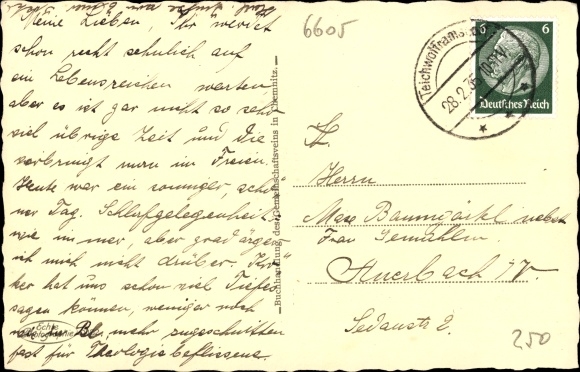 Meine Lieben, Ihr werdet
schon recht sehnlich auf
ein Lebenszeichen warten
aber es ist gar nicht so sehr
viel übrige Zeit und die
verbringt man im Freien.
Heute war ein sonniger, schö-
ner Tag. Schlafgelegenheit
wie immer, aber grad ärgere
ich mich nicht drüber.
hat uns schon viel Tiefes
sagen können, weniger noch
mehr zugeschnitten
fast für Theologiebeflissene.
Echte
Photographie
Buchhandlung des Gemeinschaftsvereins in Chemnitz.
6605
Teichwolframs
28.2.35
6 6
Deutsches Reich
Herrn
Max Baumgärtel nebst
Frau Gemahlin
Auerbach i/V
Sedanstr 2.
250